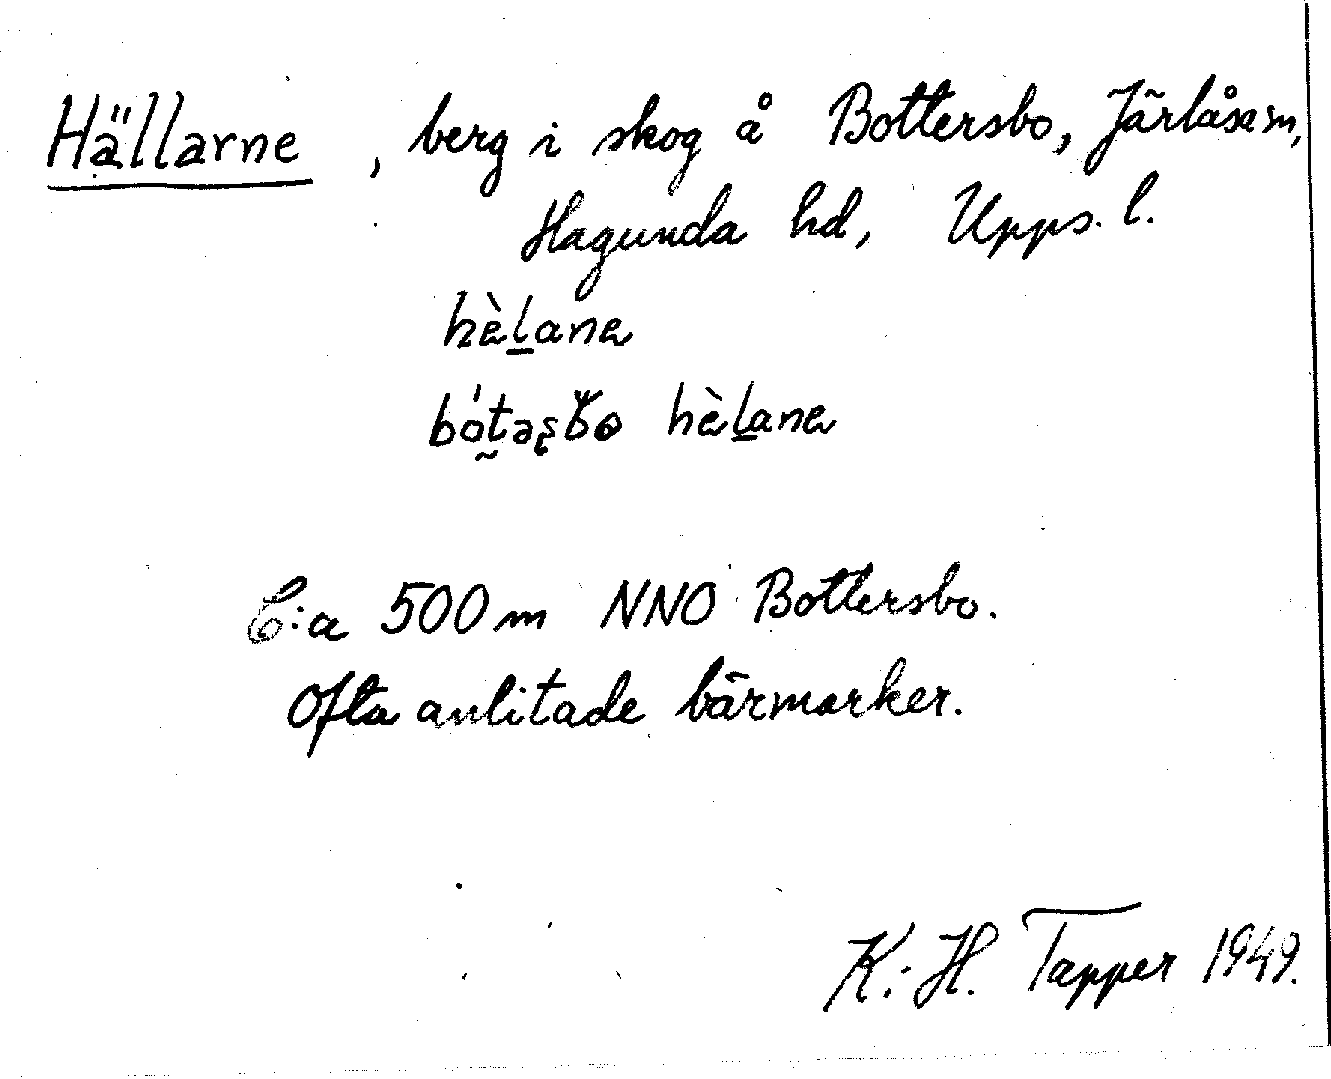 Hällarne, berg i skog å Bottersbo, Järlåsa sn,
Hagunda hd, Upps. l.
hèḻane
hèḻane
C:a 500 m NNO Bottersbo.
Ofta anlitade bärmarker.
K.-H. Tapper 1949.